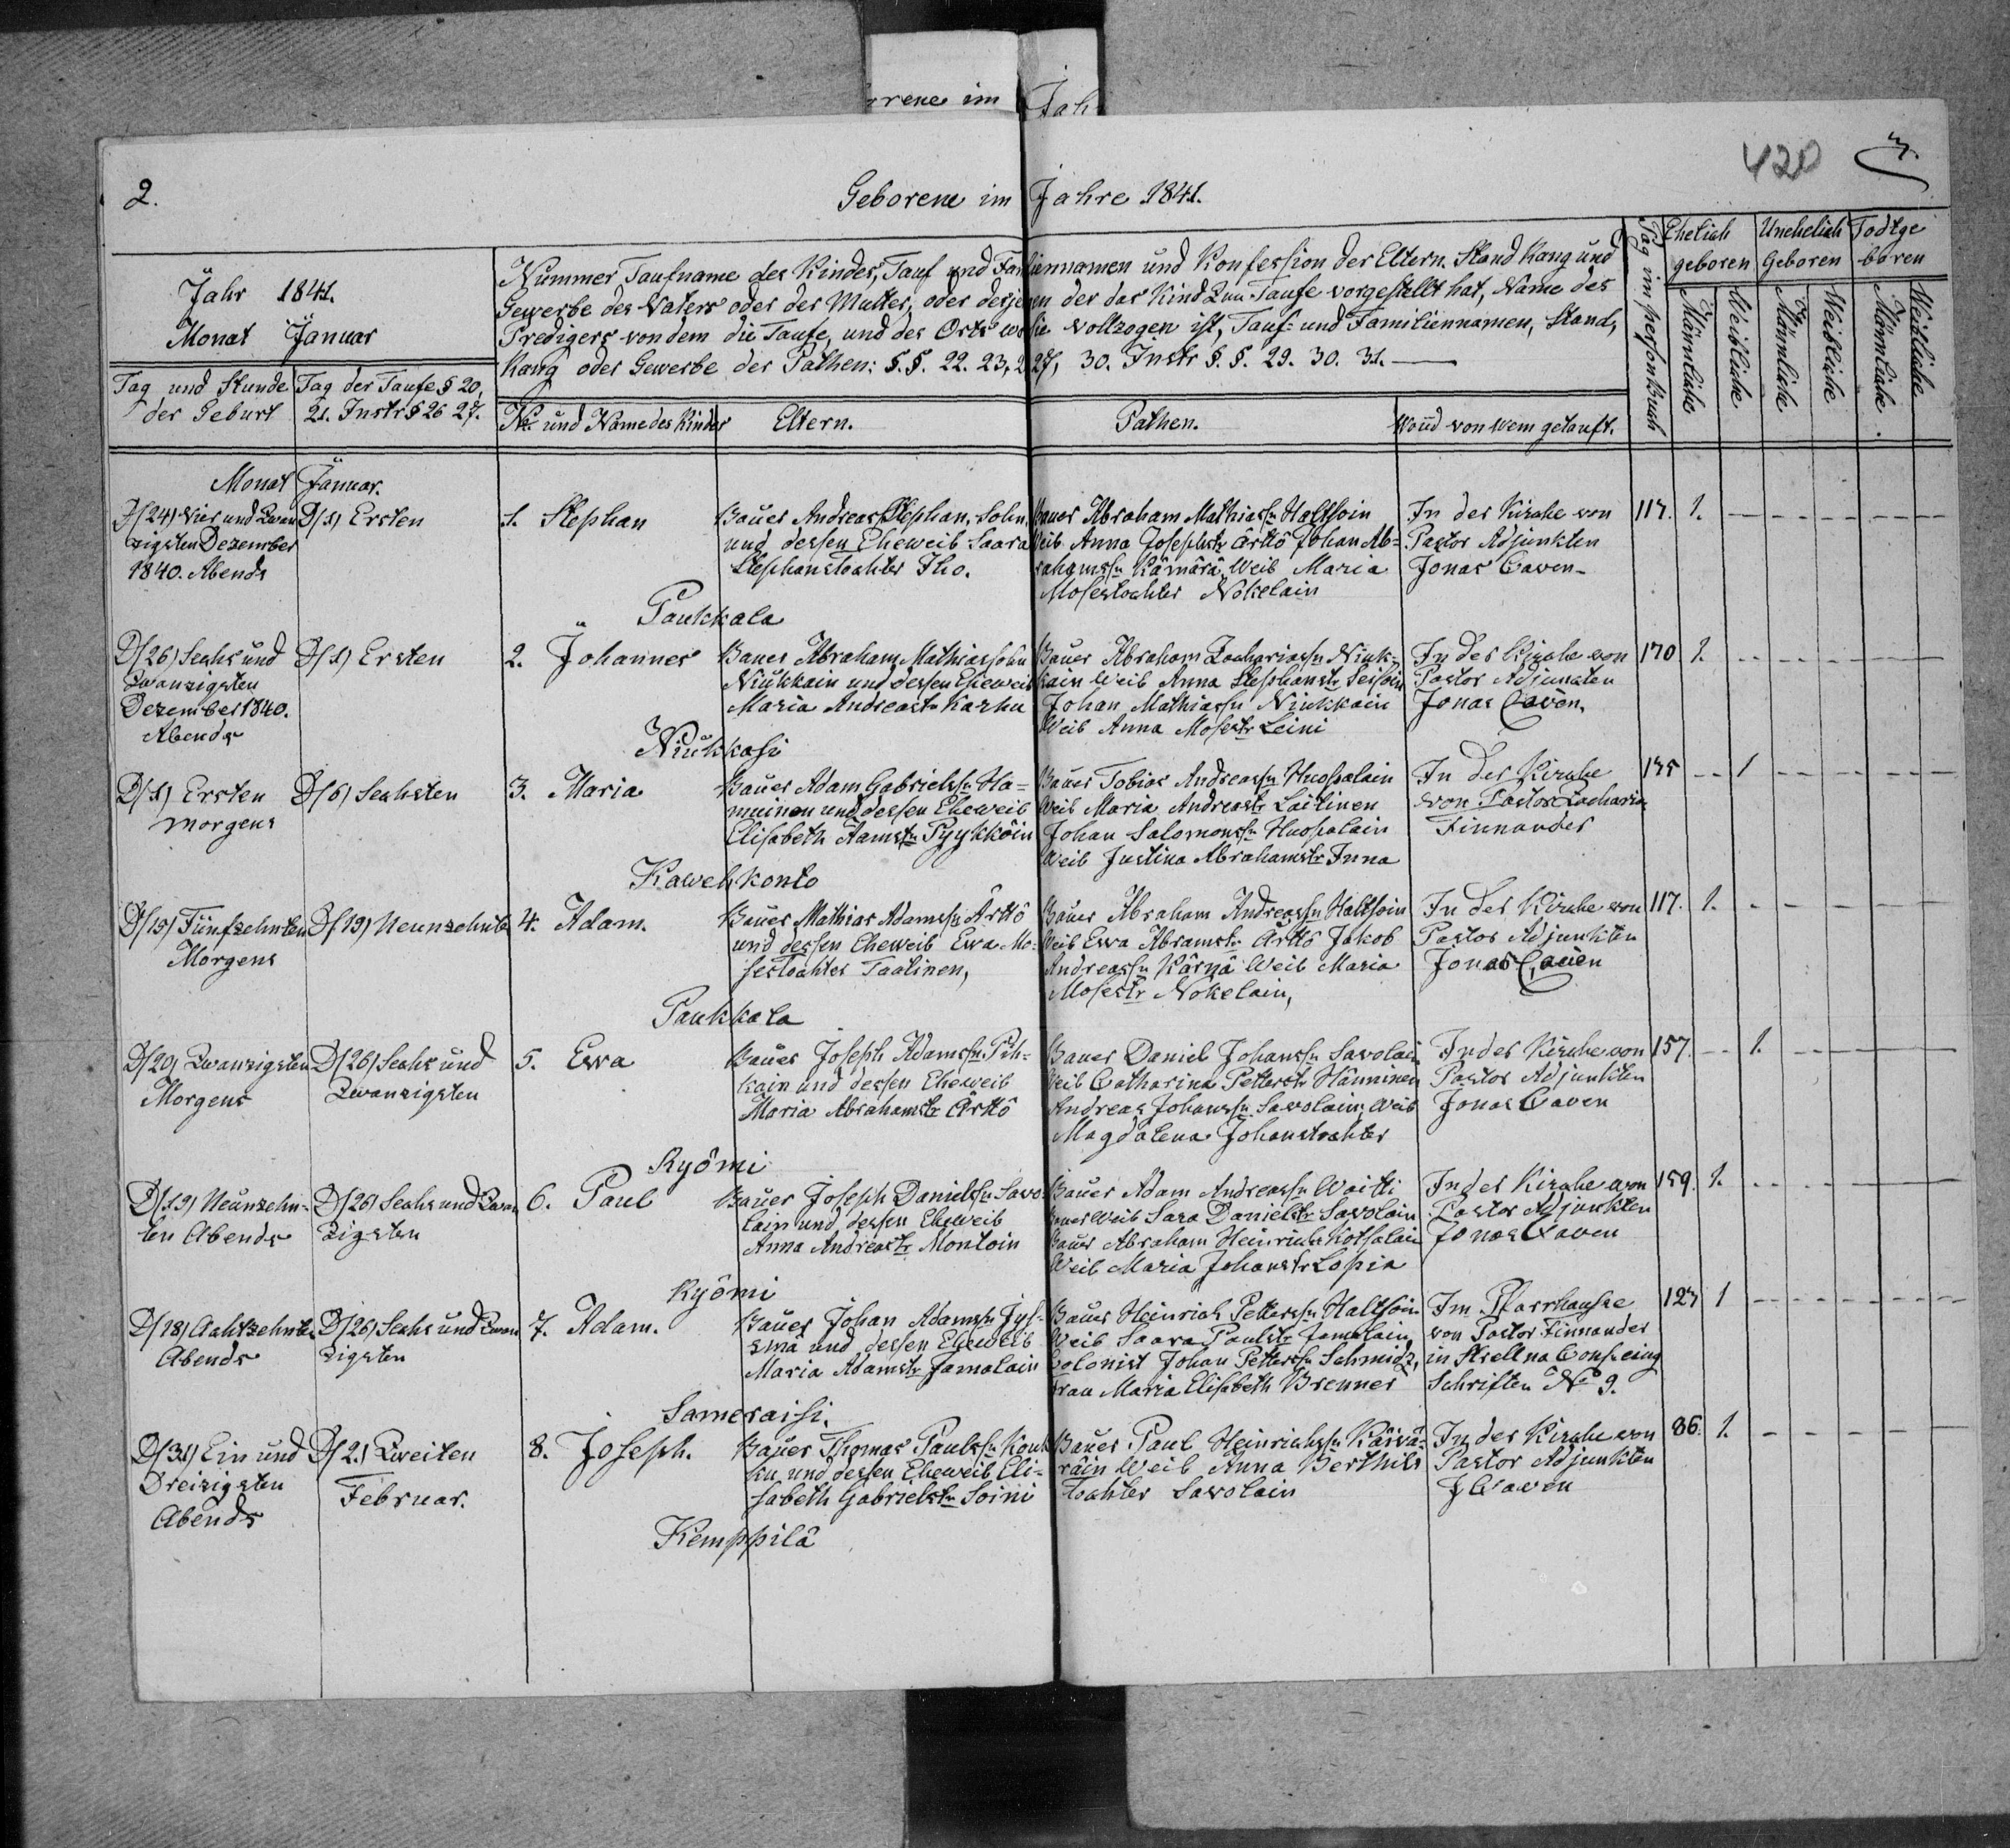 rrene im Jah
420
2.
Geborene im Jahre 1841.
Jahr 1841.
Monat Januar
Tag und Stunde der Geburt
Tag der Taufe § 20, 21. Instr § 26 27.
Nummer Taufname des Kindes, Tauf und Familiennamen und Konfession der Eltern. Stand Rang und
Gewerbe des Vaters oder der Mutter, oder desjenigen der das Kind Zur Taufe vorgestellt hat, Name des
Predigers von dem die Taufe, und des Orts wo sie vollzogen ist, Tauf- und Familiennamen, Stand,
Rang oder Gewerbe der Pathen: §.§. 22. 23, 27, 30. Instr §. §. 29. 30. 31.
No und Name des Kindes
Eltern.
Pathen.
Wo und von wem getauft.
Ehelich geboren
Unehelich Geboren
Todtge boren
Männliche
Weibliche
Männliche
Weibliche
Männliche
Weibliche
Monat Januar.
D/(24) Vier und Zwan
zigsten Dezember
1840. Abends
D/(1) Ersten
1. Stephan
Bauer Andreas Stephan, Sohn,
und dessen Eheweib Saara
Stephanstochter Iho.
Bauer Abraham Mathiassn Haltsoin
Weib Anna Josephstr Ärttö Johan Ab=
rahamssn Kämärä, Weib Maria
Mosestochter Nokelain
In der Kirche von
Pastor Adjunkten
Jonas Caven
117. 1.
Paukkala
D/(26) Sechs und
Zwanzigsten
Dezember 1840.
Abends
D/(1) Ersten
2. Johannes
Bauer Abraham Mathiassohn
Niukkain und dessen Eheweib
Maria Andreastr Karhu
Bauer Abraham Zachariassn Niuk-
kain Weib Anna Stephanstr
Johan Mathiassn Niukkain
Weib Anna Mosestr Leini
In der Kirche von
Pastor Adjunkten
Jonas Caven.
170 1.
Niukkasi
D/(1) Ersten
Morgens
D/(6) Sechsten
3. Maria
Bauer Adam Gabrielssn Ha=
muinen und dessen Eheweib
Elisabeth Aamstr Pyykköin
Bauer Tobias Andreassn Huopalain
Weib Maria Andreastr Laitinen
Johan Salomonssn Huopalain
Weib Justina Abrahamstr Inna
In der Kirche
von Pastor Zacharia
Finnander
135 1
Kawelkonto
D/(15) Fünfzehnten
Morgens
D/(19) Neunzehnte
4. Adam.
Bauer Mathias Adamssn Ärttö
und dessen Eheweib Ewa Mo=
sestochter Taatinen,
Bauer Abraham Andreassn Haltsoin
Weib Ewa Abramstr Ärttö Jakob
Andreassn Kärnä Weib Maria
Mosestr Nokelain,
In der Kirche von
Pastor Adjunkten
Jonas Caven
117. 1.
Paukkala
D/(20) Zwanzigsten
Morgens
D/(26) Sechs und
Zwanzigsten
5. Ewa
Bauer Joseph Adamssn Pih=
kain und dessen Eheweib
Maria Abrahamstr Ärttö
Bauer Daniel Johanssn Savolain
Weib Catharina Petterstr Hänninen
Andreas Johanssn Savolain, Weib
Magdalena Johanstochter
In der Kirche von
Pastor Adjunkten
Jonas Caven
157. 1.
Ryömi
D/(19) Neunzehn=
ten Abends
D/(26) Sechs und Zwan
zigsten
6. Paul
Bauer Joseph Danielssn Savo-
lain und dessen Eheweib
Anna Andreastr Montoin
Bauer Adam Andreassn Waitti
Bauer Weib Sara Danielstr Savolain
Bauer Abraham Heinrichs Kotsalain
Weib Maria Johanstr Lopia
In der Kirche von
Pastor Adjunkten
Jonas Caven
159. 1.
Ryömi
D/(18) Achtzehnten
Abends
D/(26) Sechs und Zwan
zigsten
7. Adam.
Bauer Johan Adamssn Jys-
smä und dessen Eheweib
Maria Adamstr Jamalain
Bauer Heinrich Petterssn Haltsoin
Weib Saara Paulstr Jamalain
Colonist Johan Petterssn Schmidz,
Frau Maria Elisabeth Brenner
Im Pfarrhause
von Pastor Finnander
in Strellna
Schriften No 9.
127 1
Sameraisi.
D/(31) Ein und
Dreizigsten
Abends
D/(2.) Zweiten
Februar.
8. Joseph.
Bauer Thomas Paulssn Kouk
ku und dessen Eheweib Eli=
sabeth Gabrielstr Soini
Bauer Paul Heinrichssn Kärvä-
räin Weib Anna Berthils
Tochter Savolain
In der Kirche von
Pastor Adjunkten
J Caven
86. 1.
Kemppilä